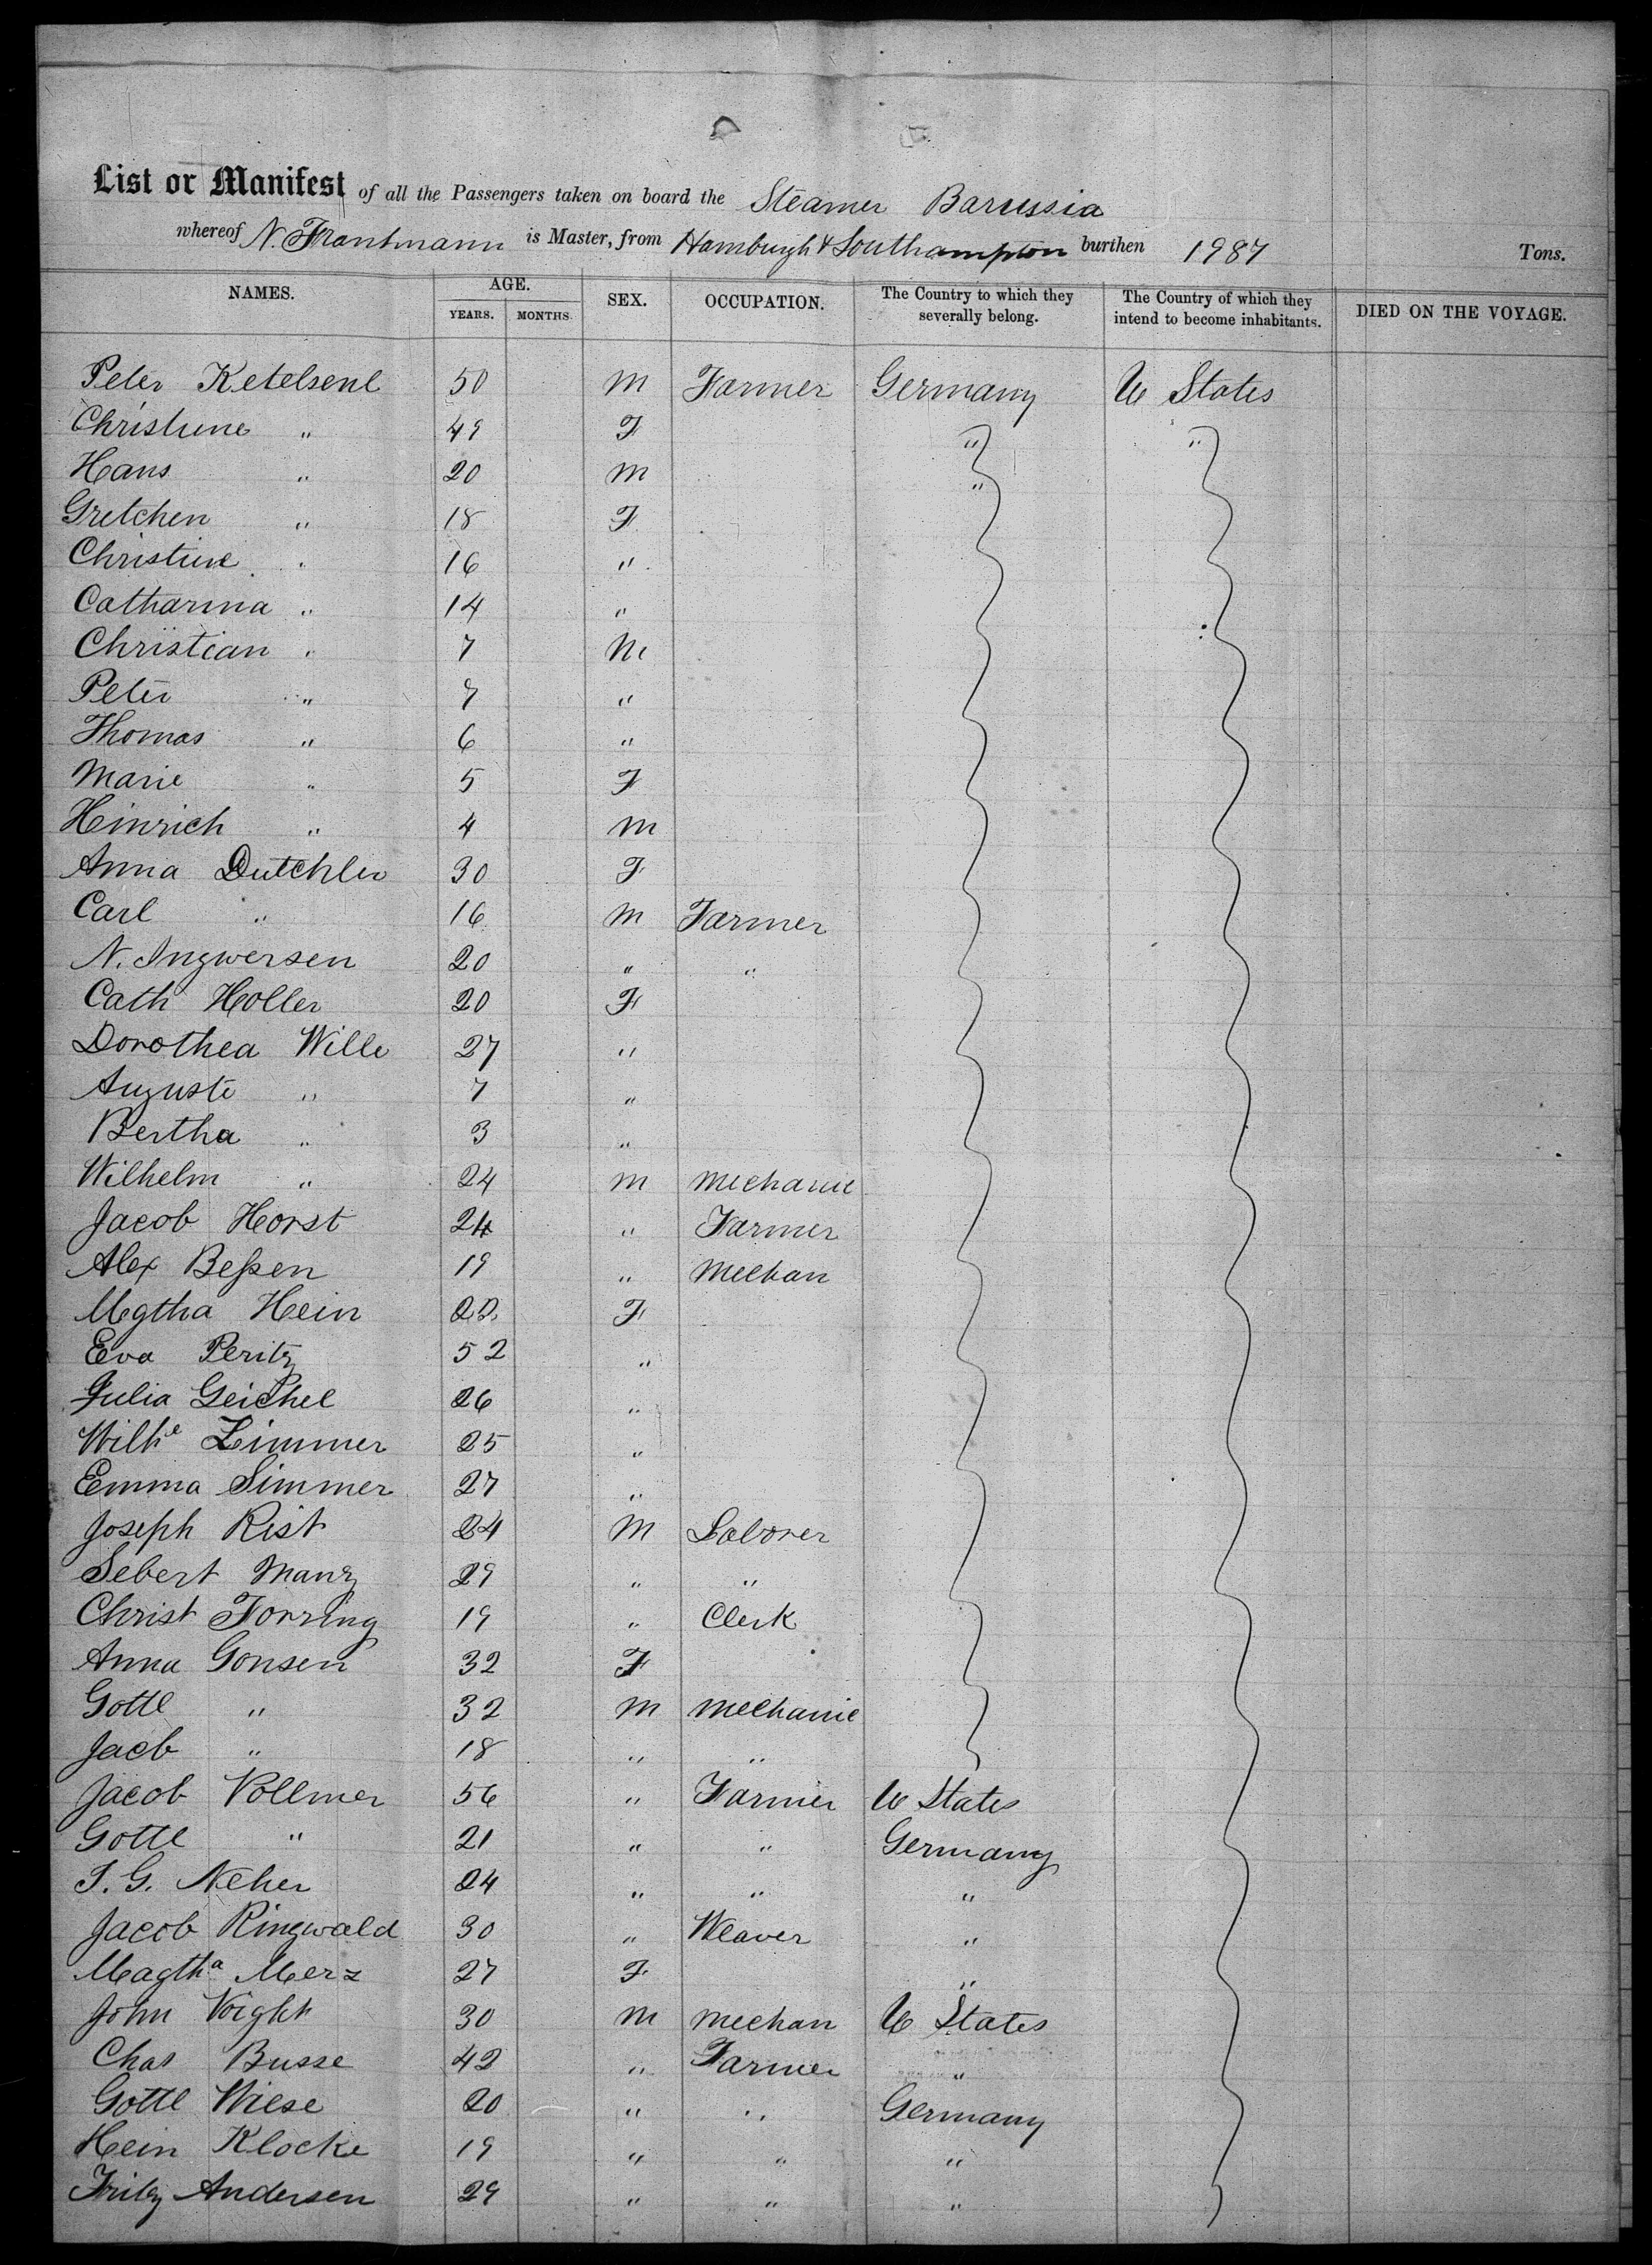 List or Manifest of all the Passengers taken on board the Steamer Barussia
whereof N. Trantmann is Master, from Hamburgh & Southampton burthen 1987 Tons.
NAMES. AGE. YEARS. MONTHS. SEX. OCCUPATION. The Country to which they severally belong. The Country of which they intend to become inhabitants. DIED ON THE VOYAGE.
Peter Ketelsenl 50 M Farmer Germany U States
Christine " 49 F " "
Hans " 20 M "
Gretchen " 18 F
Christine " 16 "
Catharina " 14 "
Christian " 7 M
Peter " 7 "
Thomas " 6 "
Marie " 5 F
Heinrich " 4 M
Anna Dutchler 30 F
Carl " 16 M Farmer
N. Ingwersen 20 " "
Cath Holler 20 F
Dorothea Wille 27 "
Auguste " 7 "
Bertha " 3 "
Wilhelm " 24 M Mechanic
Jacob Horst 24 " Farmer
Alex Beſsen 19 " Mechan
Mgtha Hein 22 F
Eva Peritz 52 "
Julia Geichel 26 "
Wilhe Zimmer 25 "
Emma Simmer 27 "
Joseph Rist 24 M Laborer
Sebert Manz 29 " "
Christ Torring 19 " Clerk
Anna Gonsen 32 F
Gottl " 32 M Mechanic
Jacb " 18 " "
Jacob Vollmer 56 " Farmer U States
Gottl " 21 " " Germany
T. G. Neher 24 " " "
Jacob Ringwald 30 " Weaver "
Magtha Merz 27 F "
John Voight 30 M Mechan U States
Chas Busse 42 " Farmer "
Gottl Wiese 20 " " Germany
Hein Klocke 19 " " "
Fritz Andersen 29 " " "